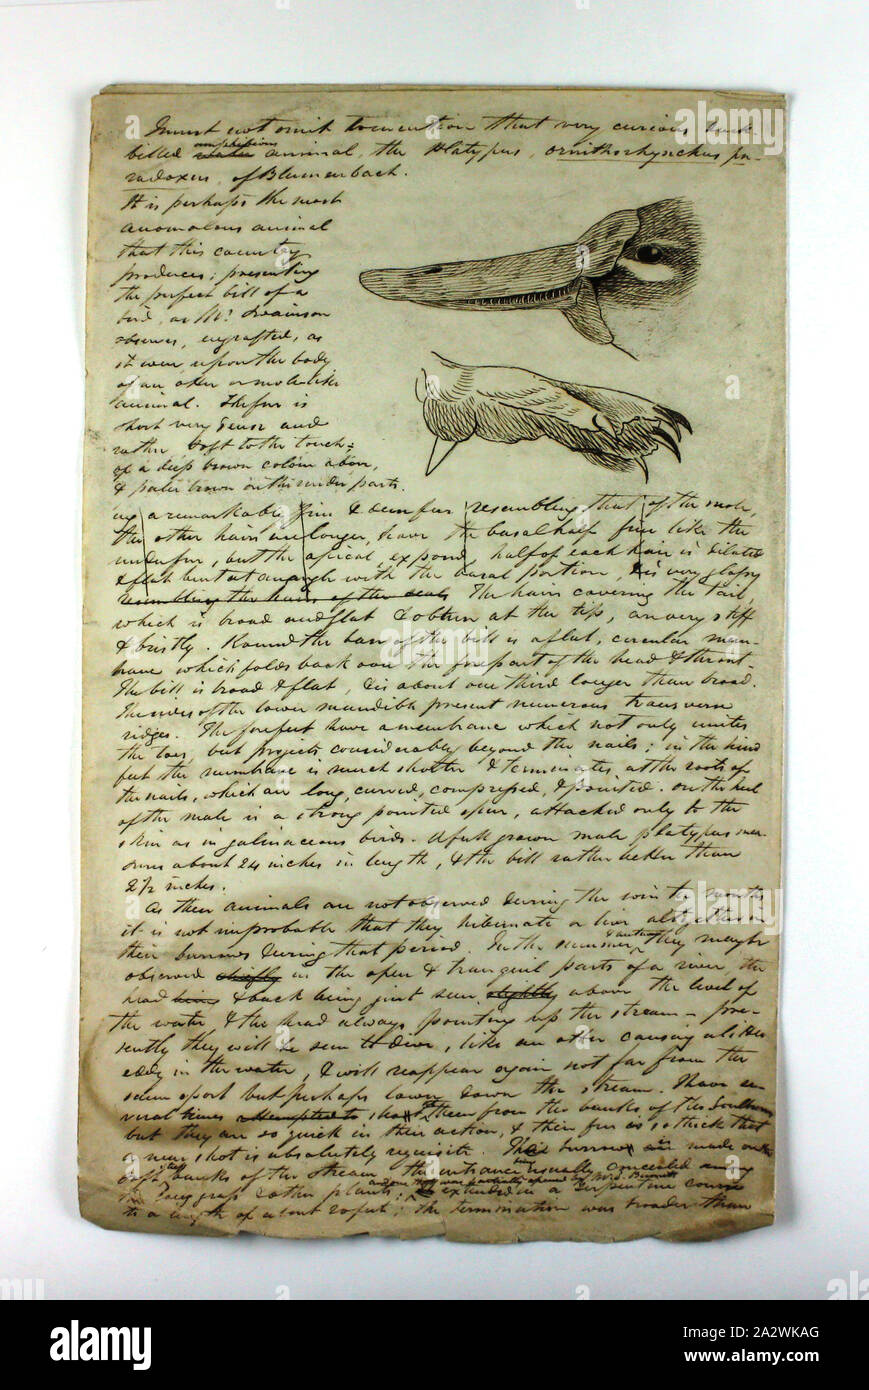 I must not omit to mention that very curious duck-
amphibious
billed water animal, the Platypus, ornithorhynchus pa-
radoxus, of Blumenbach.
It is perhaps the most
anomalous animal
that this country
produces; presenting
the perfect bill of a
bird, as Mr. Swainson
observes, engrafted, as
it were, upon the body
of an otter or mole-like
animal. The fur is
short very dense and
rather soft to the touch;
of a deep brown colour above,
& paler brown on the under parts.
a remarkable fine & dense fur resembling that of the mole,
the other hairs are longer, have the basal half fine like the
under fur, but the apical exposed half of each hair is dilated
& flat bent at an angle with the basal portion, & is very glossy
resembling the hairs of the seals The hairs covering the tail,
which is broad and flat & obtuse at the tip, are very stiff
& bristly. Round the base of the bill is a flat, circular mem-
brane which folds back over the fore part of the head & throat.
The bill is broad & flat, & is about one third longer than broad.
The sides of the lower mandible present numerous transverse
ridges. The forefeet have a membrane which not only unites
the toes, but projects considerably beyond the nails; in the hind
feet the membrane is much shorter & terminates at the roots of
the nails, which are long, curved, compressed, & pointed. On the heel
of the male is a strong pointed spur, attached only to the
skin as in galinaceous birds. A full grown male platypus mea-
sures about 24 inches in length, & the bill rather better than
2½ inches.
As these animals are not observed during the winter months
it is not improbable that they hibernate or live altogether in
their burrows during that period. In the summer they may be
observed chiefly in the open & tranquil parts of a river, the
head & back being just seen slightly above the level of
the water, & the head always pointing up the stream - pre-
sently they will be seen to dive, like an otter causing a little
eddy in the water, & will reappear again not far from the
same spot but perhaps lower down the stream. I have se-
veral times attempted to shoot them from the banks of the Southern
but they are so quick in their action, & their fur is so thick that
a near shot is absolutely requisite. Their burrows are made on the
soft banks of the stream the entrance being usually concealed among
the long grass & other plants; extended in a serpentine course
to a length of about 20 feet; the termination was broader than
alamy
a
alamy
Image ID: 2A2WKAG
www.alamy.com